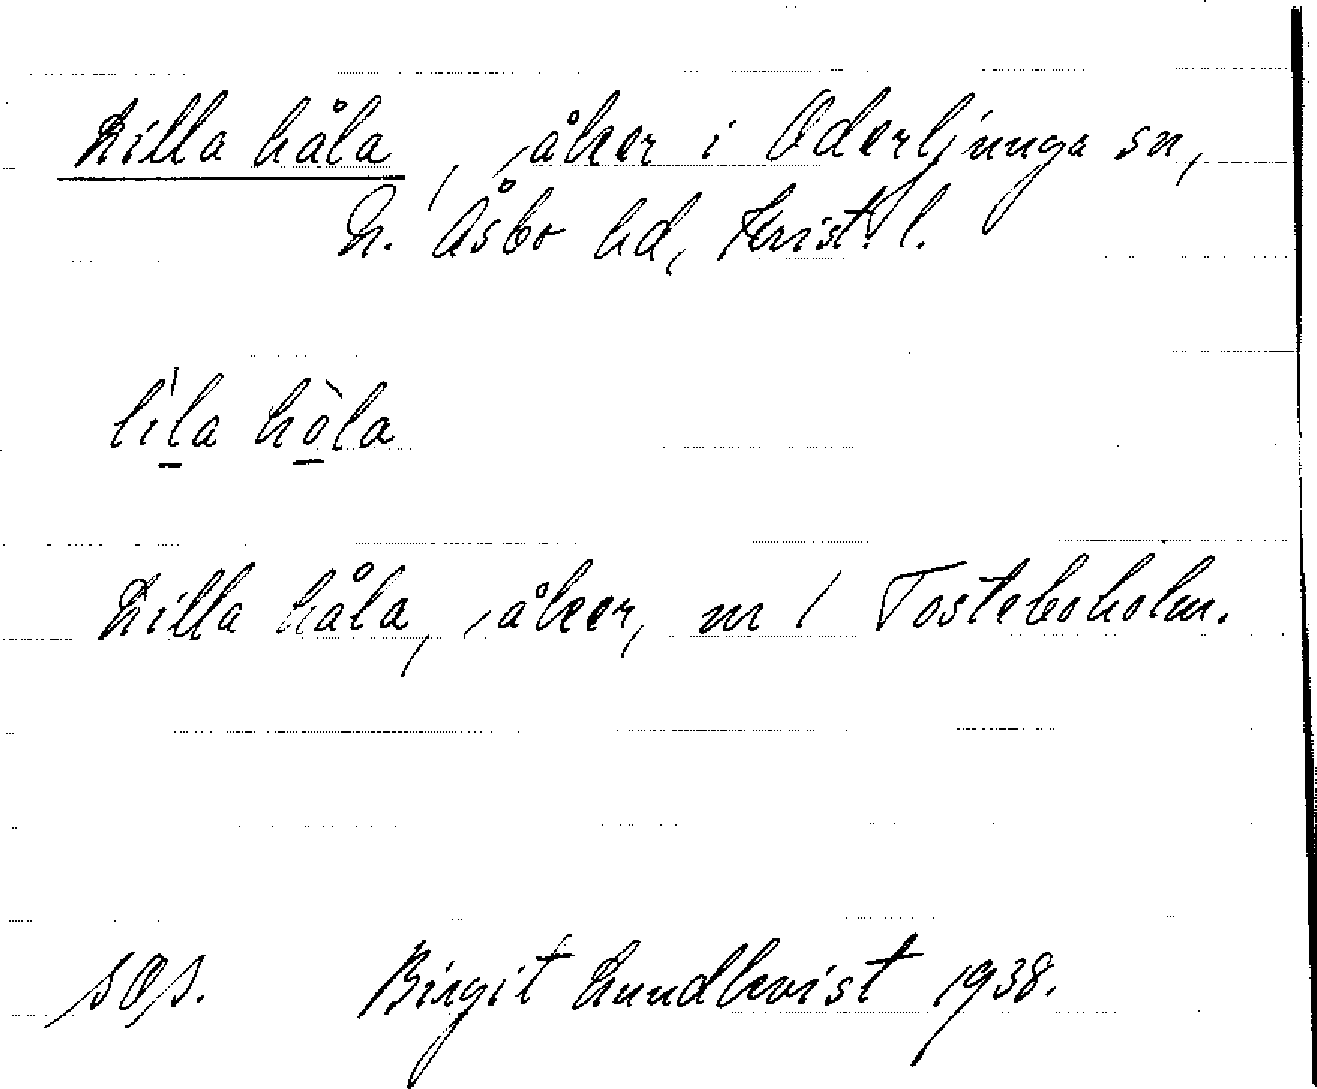 Lilla håla, åker i Oderljunga sn,
N. Åsbo hd, Krist. l.
lila hòla
Lilla håla, åker, m / Tosteboholm.
sOs. Birgit Lundkvist 1938.